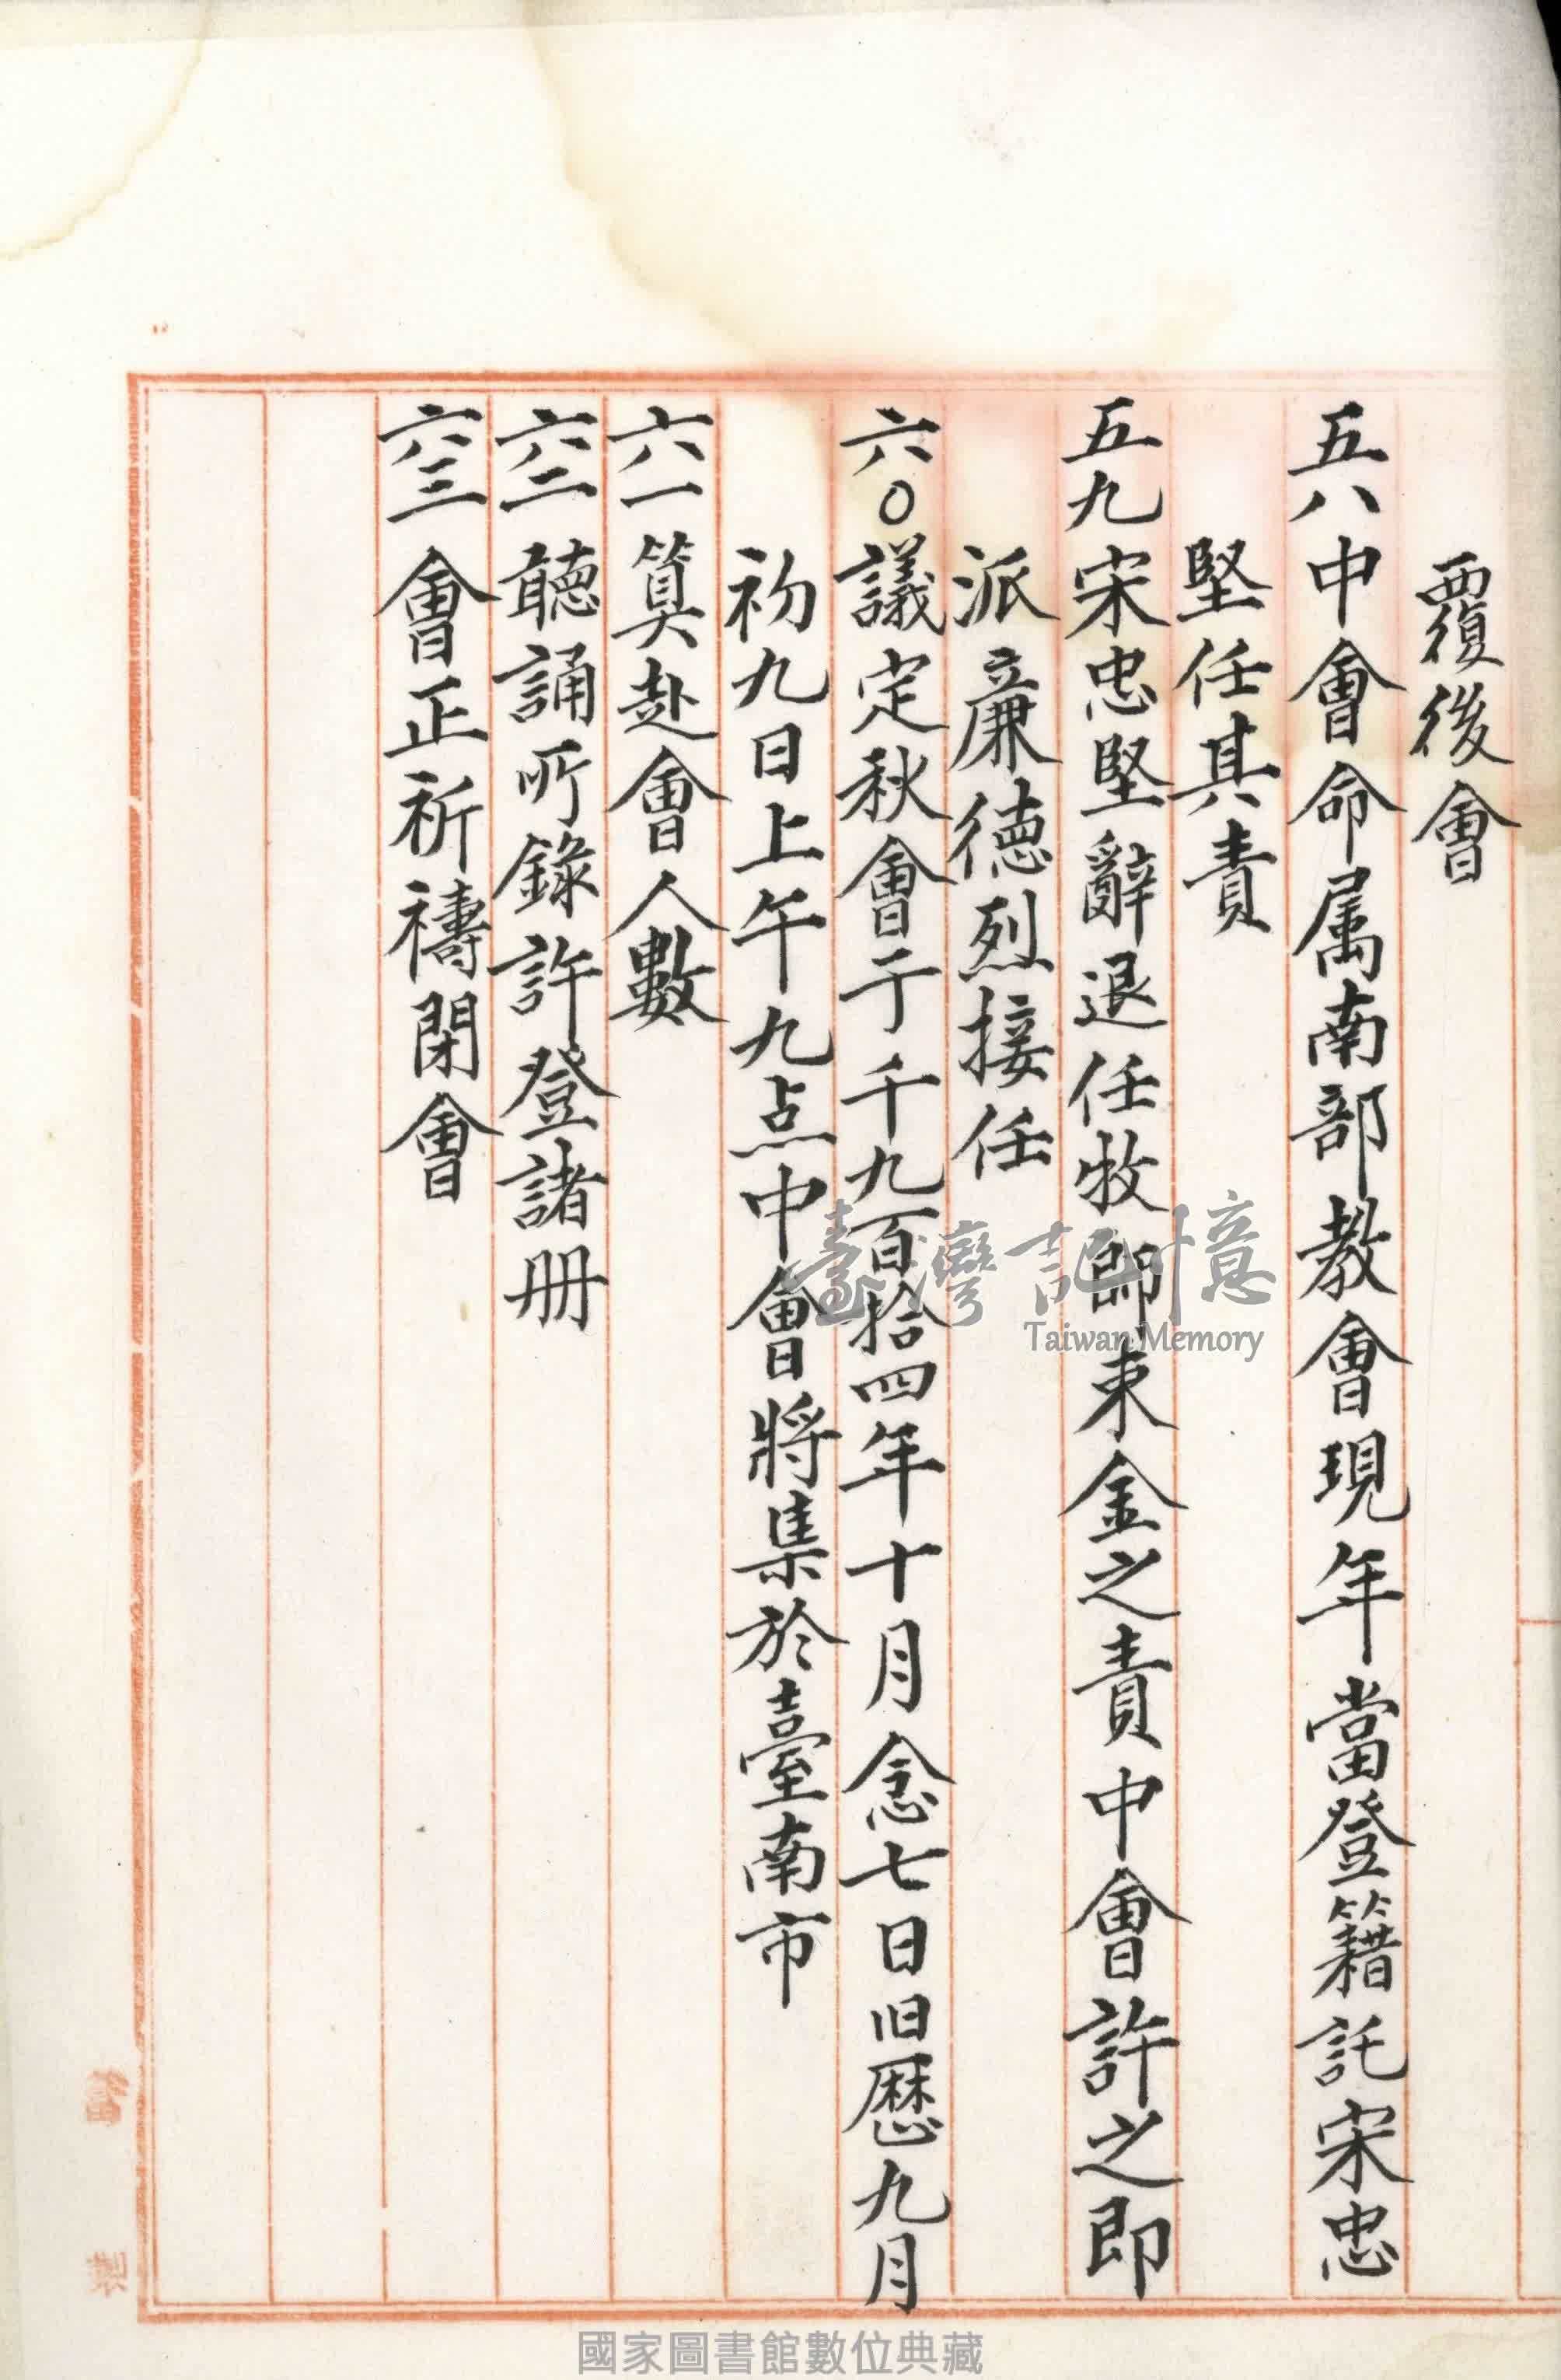 覆後會
五八中會命属南部教會現年當登籍託宋忠
堅任其責
五九宋忠堅辭退任牧師束金之責中會許之即
派廉德烈接任
六〇議定秋會于千九百拾四年十月念七日旧歷九月
初九日上午九点中會將集於臺南市
六一算赴會人數
六二聽誦所錄許登諸册
六三會正祈禱閉會
臺灣記憶
Taiwan Memory
國家圖書館數位典藏